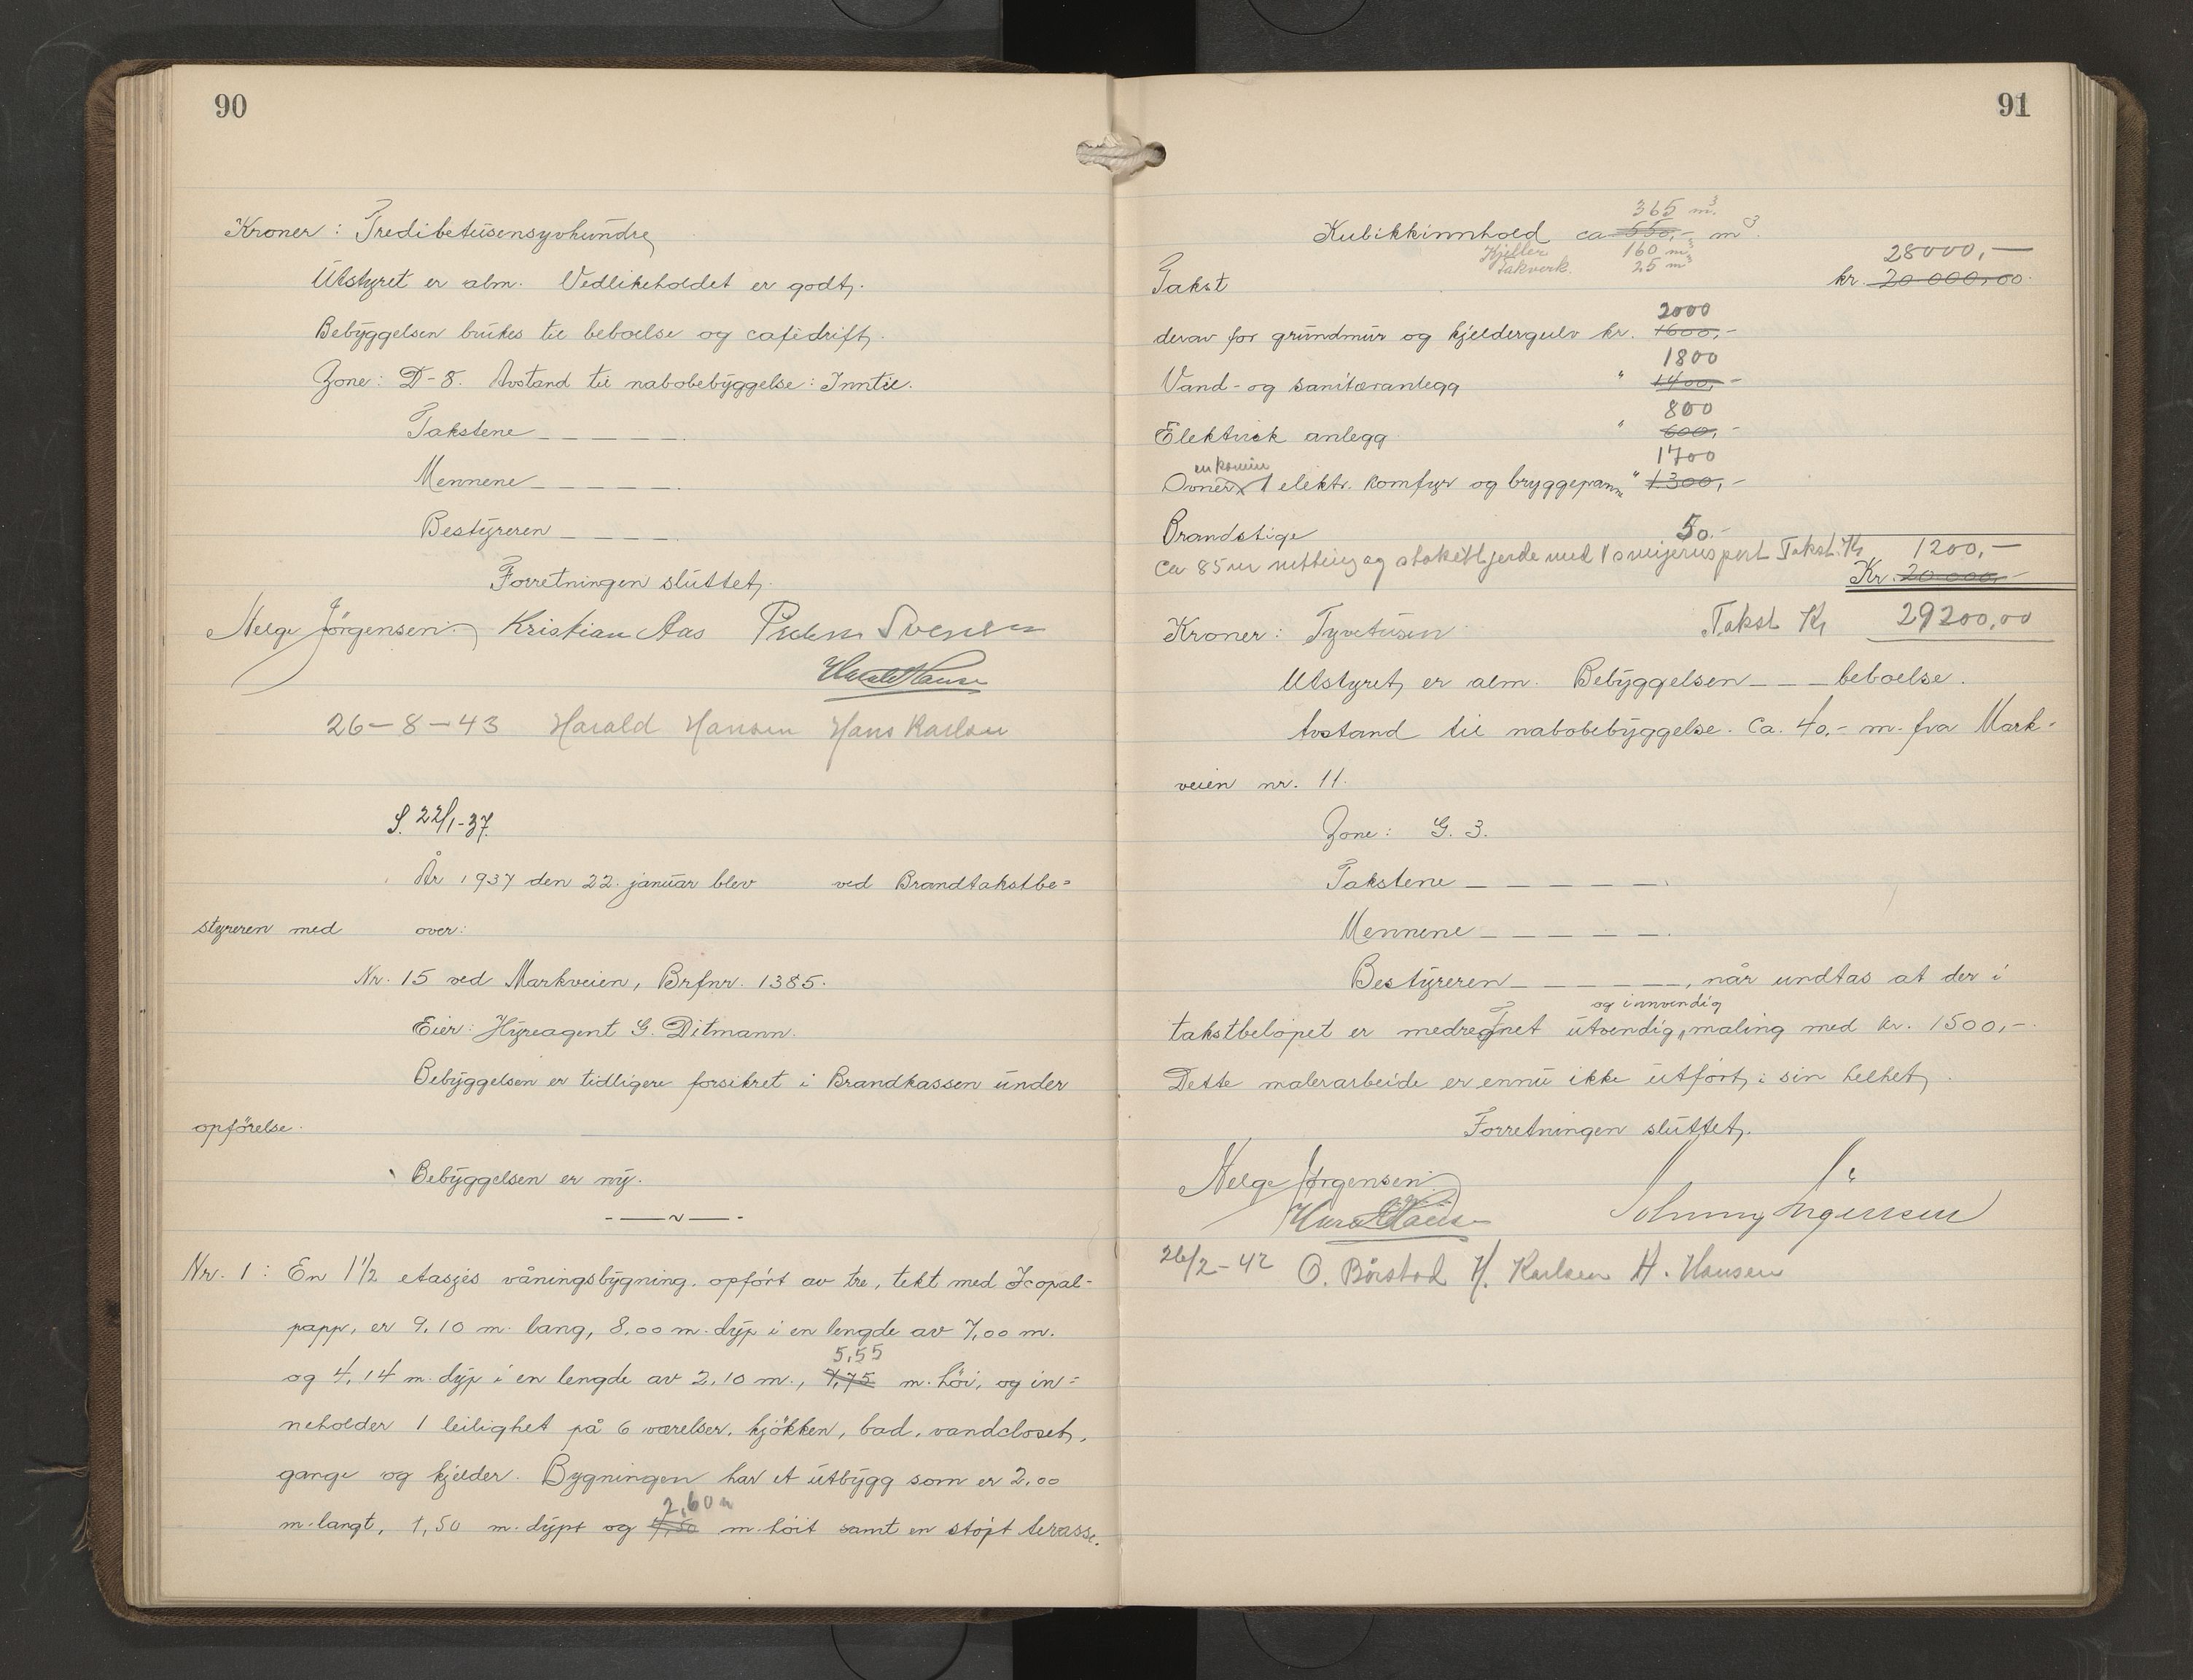 90
Kroner: Tredivetusensyvhundre
Utstyret er alm. Vedlikeholdet er godt.
Bebyggelsen brukes til beboelse og cafédrift.
Zone: D-8. Avstand til nabobebyggelse: Inntil.
Takstene _ _ _ _ _.
Mennene _ _ _ _ _.
Bestyreren _ _ _ _.
Forretningen sluttet.
Helge Jörgensen. Kristian Aas
26-8-43 Harald Hansen Hans Karlsen
S. 22/1-37.
År 1937 den 22. januar blev ved Brandtakstbe=
styreren med over:
Nr. 15 ved Markveien, Brfnr. 1385.
Eier: Hyreagent G. Ditmann.
Bebyggelsen er tidligere forsikret i Brandkassen under
opförelse.
Bebyggelsen er ny.
Nr. 1: En 1 1/2 etasjes våningsbygning, opfört av tre, tekt med Icopal-
papp, er 9,10 m. lang, 8,00 m. dyp i en lengde av 7,00 m.
5,55
og 4,14 m. dyp i en lengde av 2,10 m., 7,75 m. höi, og in=
neholder 1 leilighet på 6 værelser, kjökken, bad, vandcloset,
gange og kjelder. Bygningen har et utbygg som er 2,00
2,60 m
m. langt, 1,50 m. dypt og m. höit samt en stöpt terasse.
91
365 m³.
Kubikkinnhold ca 550,- m³.
Kjeller 160 m³
Takverk. 25 m³
28000,-
Takst kr. 20 000,00
2000
derav for grundmur og kjeldergulv kr. 1600,-
1800
Vand- og sanitæranlegg " 1400,-
800
Elektrisk anlegg " 600,-
1700
en kamin
Ovner, 1 elektr. komfyr og bryggepanne " 1300,-
Brandstige 50.-
Ca 85 m netting og stakittgjerde med 1 smijernsport Takst. Kr 1200,-
Kr. 20 000,-
Kroner: Tyvetusen Takst Kr 29200,00
Utstyret er alm. Bebyggelsen _ _ _ beboelse.
Avstand til nabobebyggelse. Ca. 40,- m. fra Mark-
veien nr. 11.
Zone: G. 3.
Takstene _ _ _ _ _ _.
Mennene _ _ _ _ _ _.
Bestyreren _ _ _ _ _ _, når undtas at der i
og innvendig
takstbelöpet er medregnet utvendig maling med kr. 1500,-.
Dette malerarbeide er ennu ikke utfört i sin helhet.
Forretningen sluttet.
Helge Jörgensen.
26/2-42 O. Börstad H. Karlsen H. Hansen